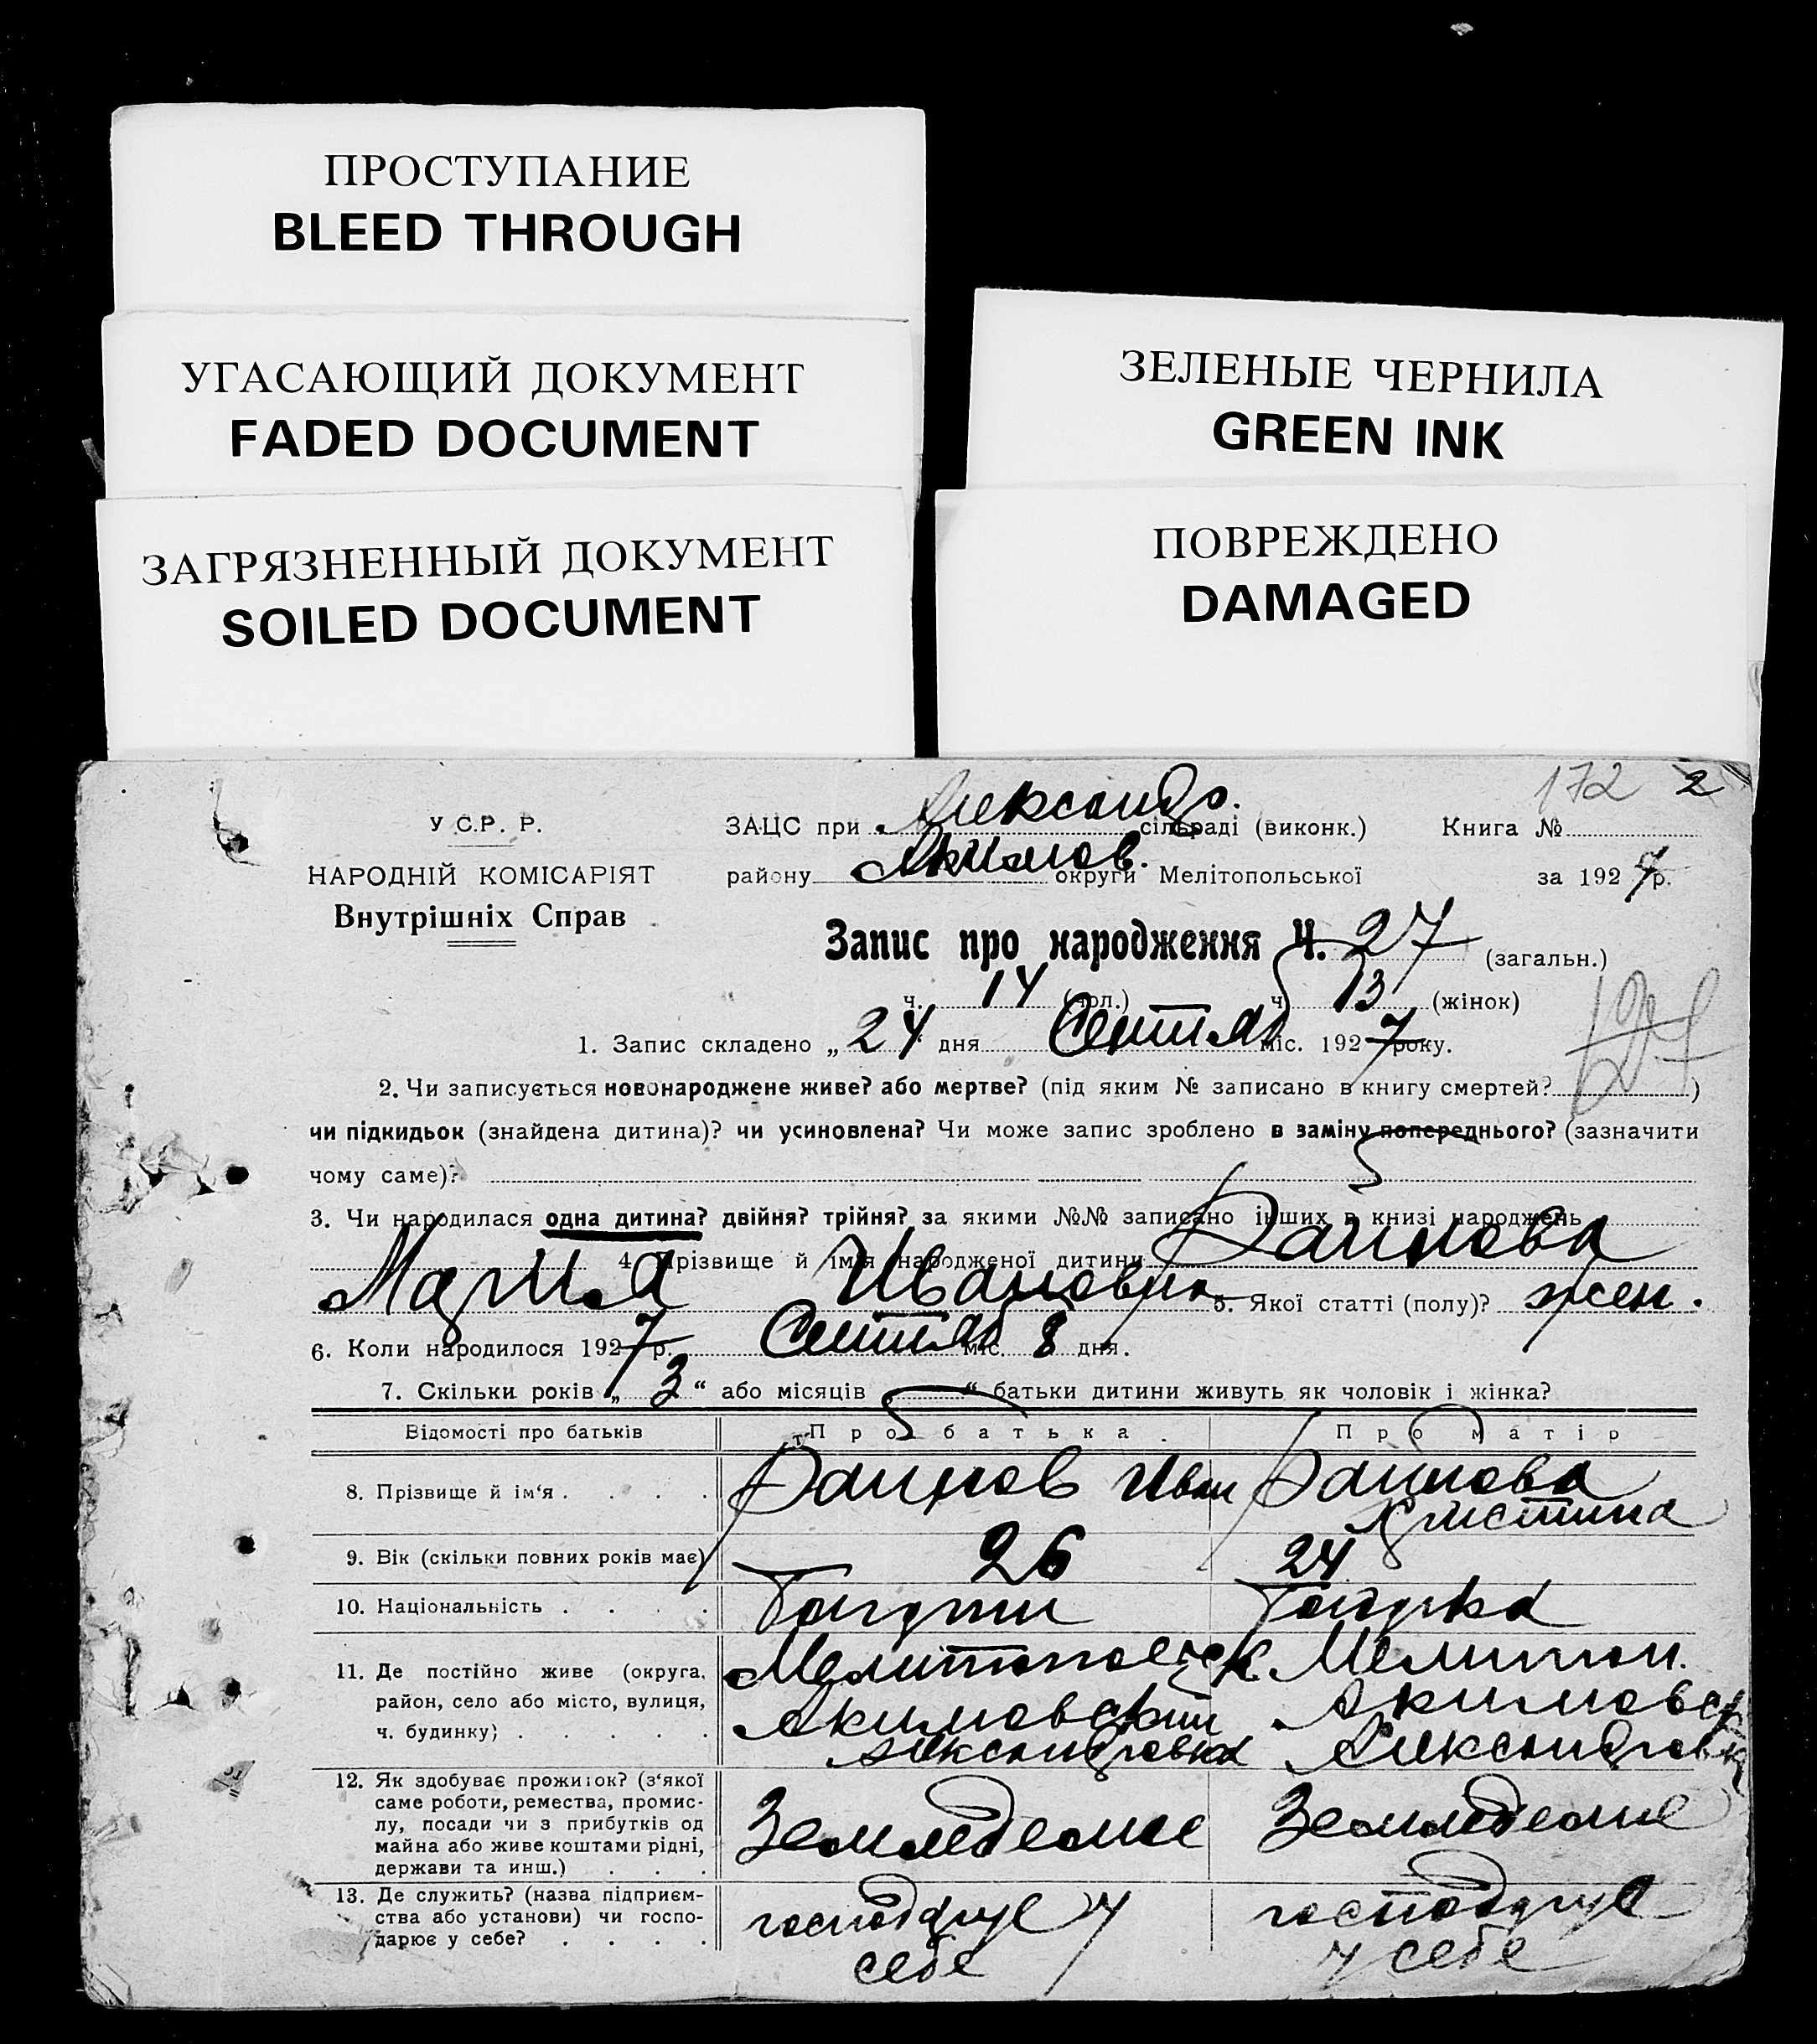 ПРОСТУПАНИЕ
BLEED THROUGH
УГАСАЮЩИЙ ДОКУМЕНТ
FADED DOCUMENT
ЗАГРЯЗНЕННЫЙ ДОКУМЕНТ
SOILED DOCUMENT
ЗЕЛЕНЫЕ ЧЕРНИЛА
GREEN INK
ПОВРЕЖДЕНО
DAMAGED
172 2
У С.Р. Р.
НАРОДНІЙ КОМІСАРІЯТ
Внутрішніх Справ
ЗАЦС при Александр. сільраді (виконк.) Книга №
району Акимов. округи Мелітопольської за 1927 р.
Запис про народження Ч. 27 (загальн.)
ч. 14 (чол.) ч. 13 (жінок)
1. Запис складено „24“ дня Сентяб міс. 1927 року.
2. Чи записується новонароджене живе? або мертве? (під яким № записано в книгу смертей? )
чи підкидьок (знайдена дитина)? чи усиновлена? Чи може запис зроблено в заміну попереднього? (зазначити
чому саме)?
3. Чи народилася одна дитина? двійня? трійня? за якими №№ записано інших в книзі народжень
4. Прізвище й імія народженої дитини
Мария Ивановна 5. Якої статті (полу)? жен.
6. Коли народилося 1927 р. Сентяб міс. 8 дня.
7. Скільки років „3“ або місяців „ “ батьки дитини живуть як чоловік і жінка?
Відомості про батьків Про батька Про матір
8. Прізвище й ім‘я . . . . Иван
Кристина
9. Вік (скільки повних років має) 26 24
10. Національність . . . .
11. Де постійно живе (округа, Мелитопольск. Мелитоп.
район, село або місто, вулиця, Акимовский Акимовск
ч. будинку) . . . . . Александровка Александровк
12. Як здобуває прожиток? (з‘якої
саме роботи, ремества, промис-
лу, посади чи з прибутків од
майна або живе коштами рідні,
держави та инш.) . . .
Земледелие Земледелие
13. Де служить? (назва підприєм-
ства або установи) чи госпо-
дарює у себе? . . . .
у
себе у себе